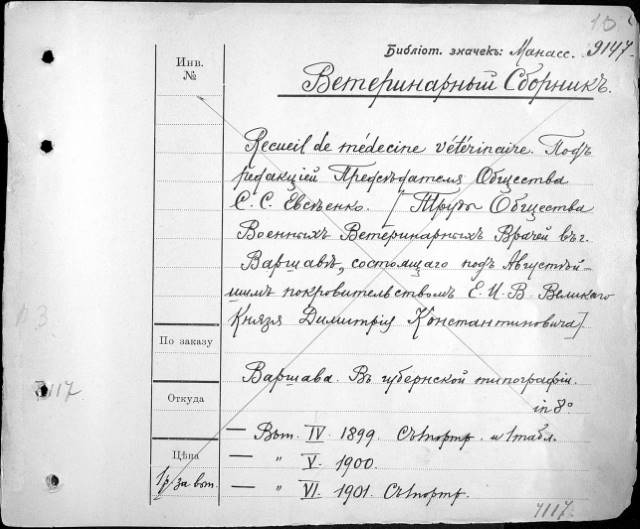 10
Библіот. значекъ: Манасс. 9147.
Инв.
№
Ветеринарный Сборникъ.
Recueil de médecine vétérinaire. Подъ
редакціей Предсѣдателя Общества
С. С. Евсѣенко. [Труды Общества
Военныхъ Ветеринарныхъ Врачей въ г.
Варшавѣ, состоящаго подъ Августѣй-
шимъ покровительствомъ Е. И. В. Великаго
Князя Димитрія Константиновича].
По заказу
Варшава. Въ губернской типографіи.
in 8°
Откуда
— Вып. IV. 1899. Съ 1 портр. и 1 табл.
Цѣна
— " V. 1900.
1 р/за вып.
— " VI. 1901. Съ 1 портр.
7117.
7117